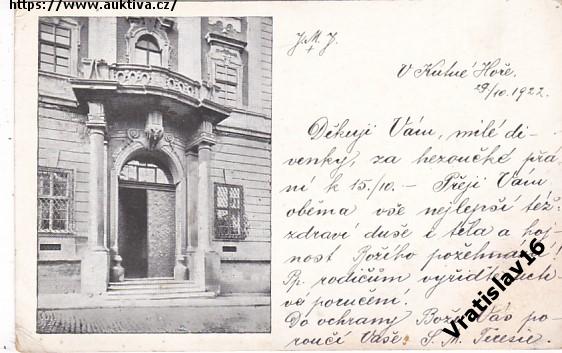 https://www.auktiva.cz/
J.M.J.
+
V Kutné Hoře.
29/10. 1922.
Děkuji Vám, milé di-
venky, za hezoučké přá-
ní k 15./10. — Přeji Vám
oběma vše nejlepší též
zdraví duše i tela a hoj-
nost Božího požehnání!
Pp. rodičům vyřiďte
poručení.
Do ochrany Boží Vás po-
roučí Vaše S. M. Teresie.
Vratislav16